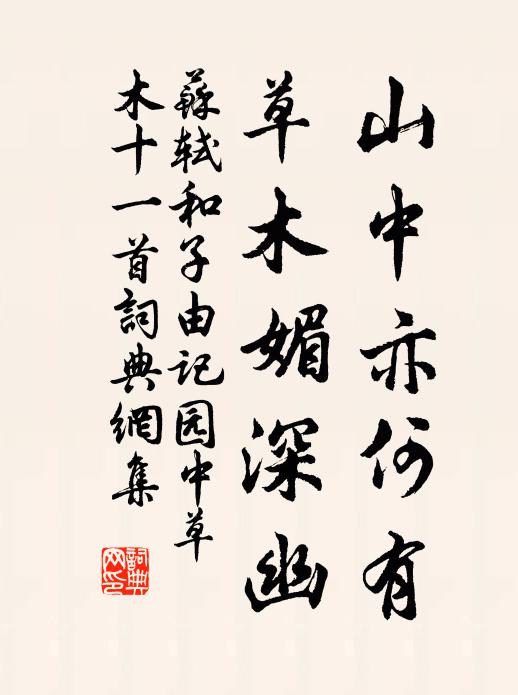 山中亦何有
草木媚深幽
蘇軾和子由记园中草
木十一首詞典網集
詞典
网印